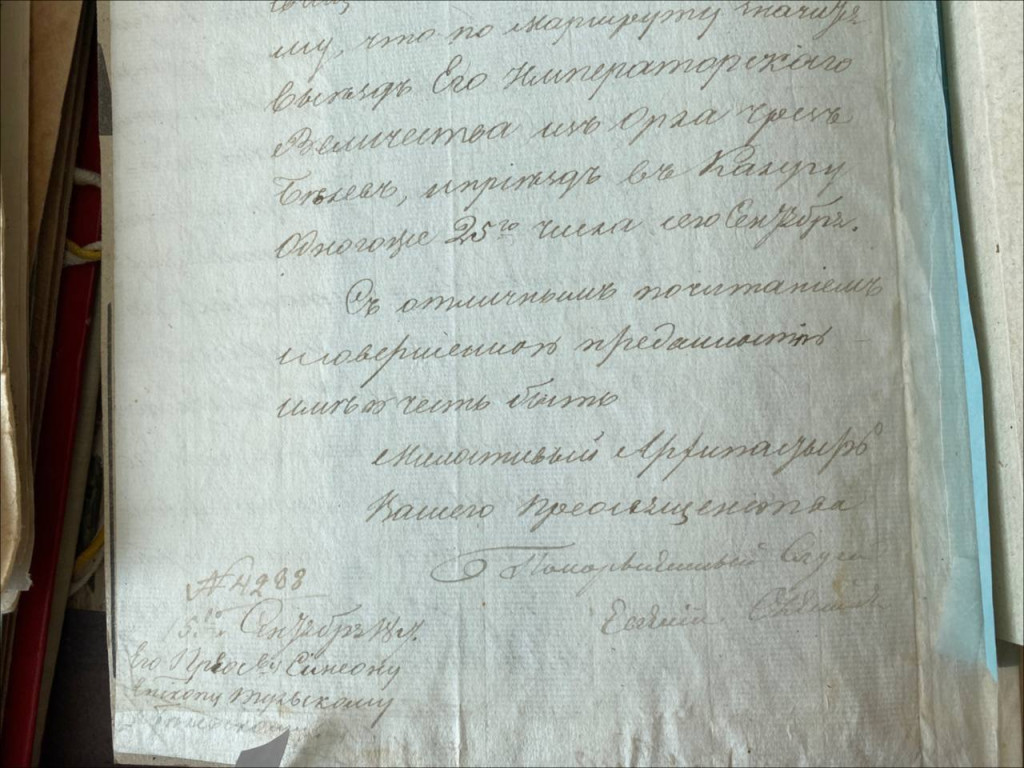 му, что по маршруту значитъся
выѣздъ Его Императорскаго
Величества изъ Орла чрезъ
Бѣлевъ, и приѣздъ въ Калугу
одногоже 25го числа сего Сентября.
Съ отличнымъ почитаніемъ
и совершенною преданностію
имѣю честь быть
Милостивый Архипастырь
Вашего Преосвященства
Покорнѣйшій Слуга
№ 4288
15го Сентября
Его Преосв. Симеону
Епископу Тульскому